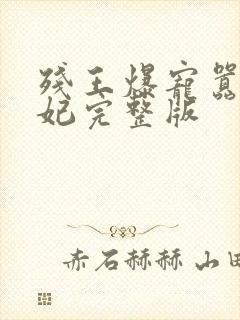 残王爆宠嚣
妃完整版
赤石赫赫山田